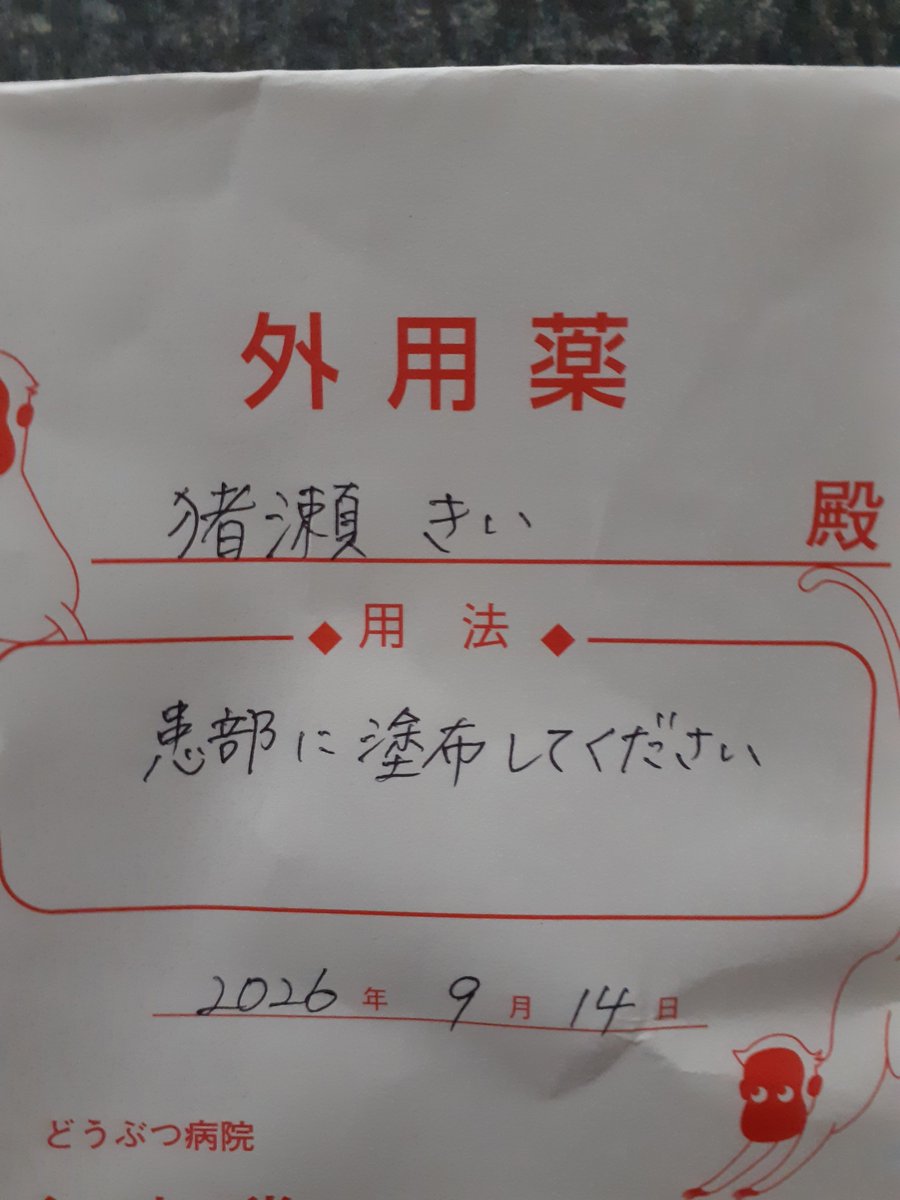 外用薬
猪瀬 きい 殿
◆用法◆
患部に塗布してください
2026年9月14日
どうぶつ病院